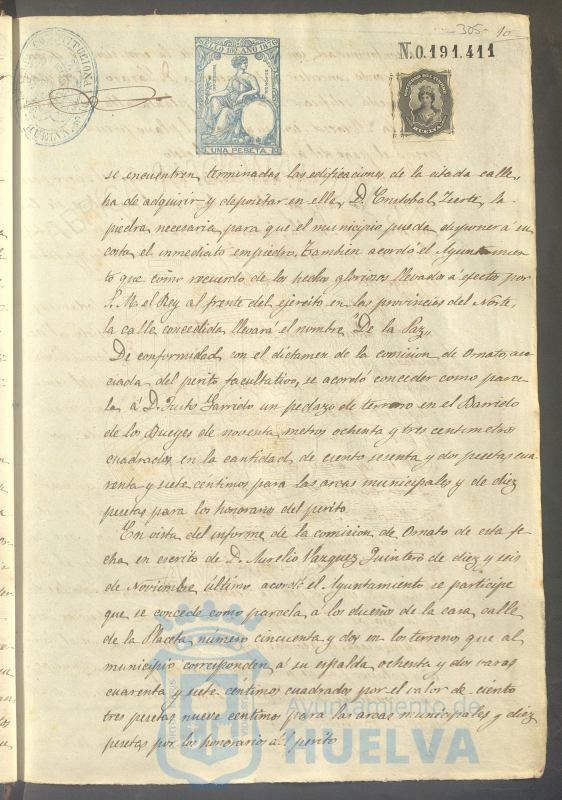 305 10
SELLO DE AÑO 1876
UNA PESETA
N.0.191.411
HUELVA
se encuentren terminadas las edificaciones de la citada calle,
ha de adquirir y depositar en ella, D. Cristobal Iserte, la
piedra necesaria para que el municipio pueda disponer á su
costa el inmediato empiedro. Tambien acordó el Ayuntamien
to que como recuerdo de los hechos gloriosos llevados a efecto por
S. M. el Rey al frente del ejército en las provincias del Norte,
la calle concedida llevará el nombre "De la Paz„
De conformidad con el dictamen de la comision de Ornato, aso
ciada del perito facultativo, se acordó conceder como parce
la á D. Justo Garrido un pedazo de terreno en el Barrido
de los Bueyes de noventa metros ochenta y tres centimetros
cuadrados en la cantidad de ciento sesenta y dos pesetas cua
renta y siete centimos para las arcas municipales y de diez
pesetas para los honorarios del perito.
En vista del informe de la comision de Ornato de esta fe
cha en escrito de D. Aurelio Vazquez Quintero de diez y seis
de Noviembre último, acordó el Ayuntamiento se participe
que se concede como parcela á los dueños de la casa calle
de la Placeta, número cincuenta y dos en los terrenos que al
municipio corresponden á su espalda ochenta y dos varas
cuarenta y siete centimos cuadrados por el valor de ciento
tres pesetas nueve centimos para las arcas municipales y diez
pesetas por los honorarios al perito.
Ayuntamiento de
HUELVA